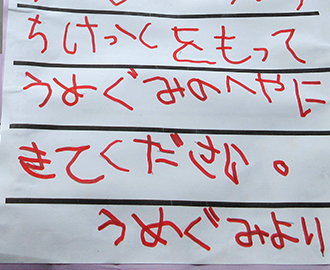 ちけっとをもって
うめぐみのへやに
きてください。
うめぐみより